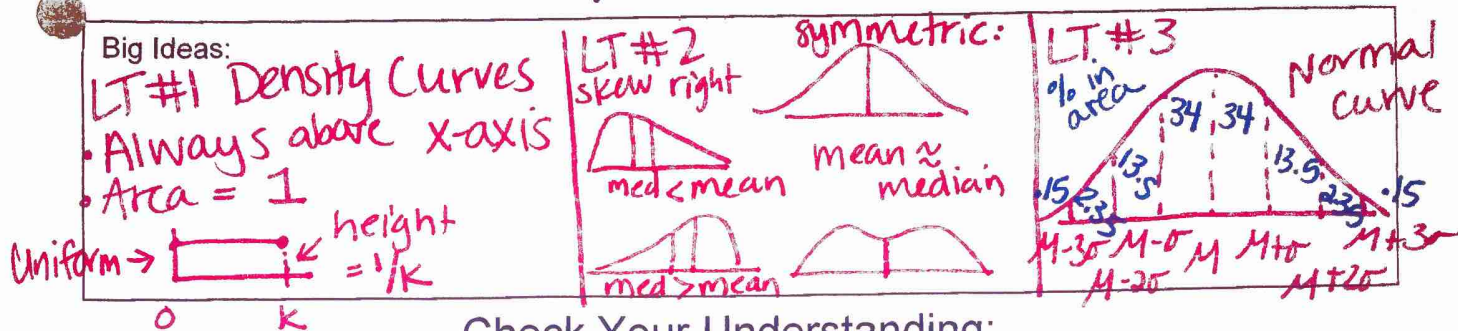 Big Ideas:
LT #1 Density Curves
• Always above x-axis
• Area = 1
Uniform →
height
= 1/K
0 K
LT #2
skew right
med < mean
med > mean
symmetric:
mean ≈
median
LT #3
% in
area
Normal
curve
.15 2.35 13.5 34 34 13.5 2.35 .15
μ-3σ μ-2σ μ-σ μ μ+σ μ+2σ μ+3σ
Check Your Understanding: